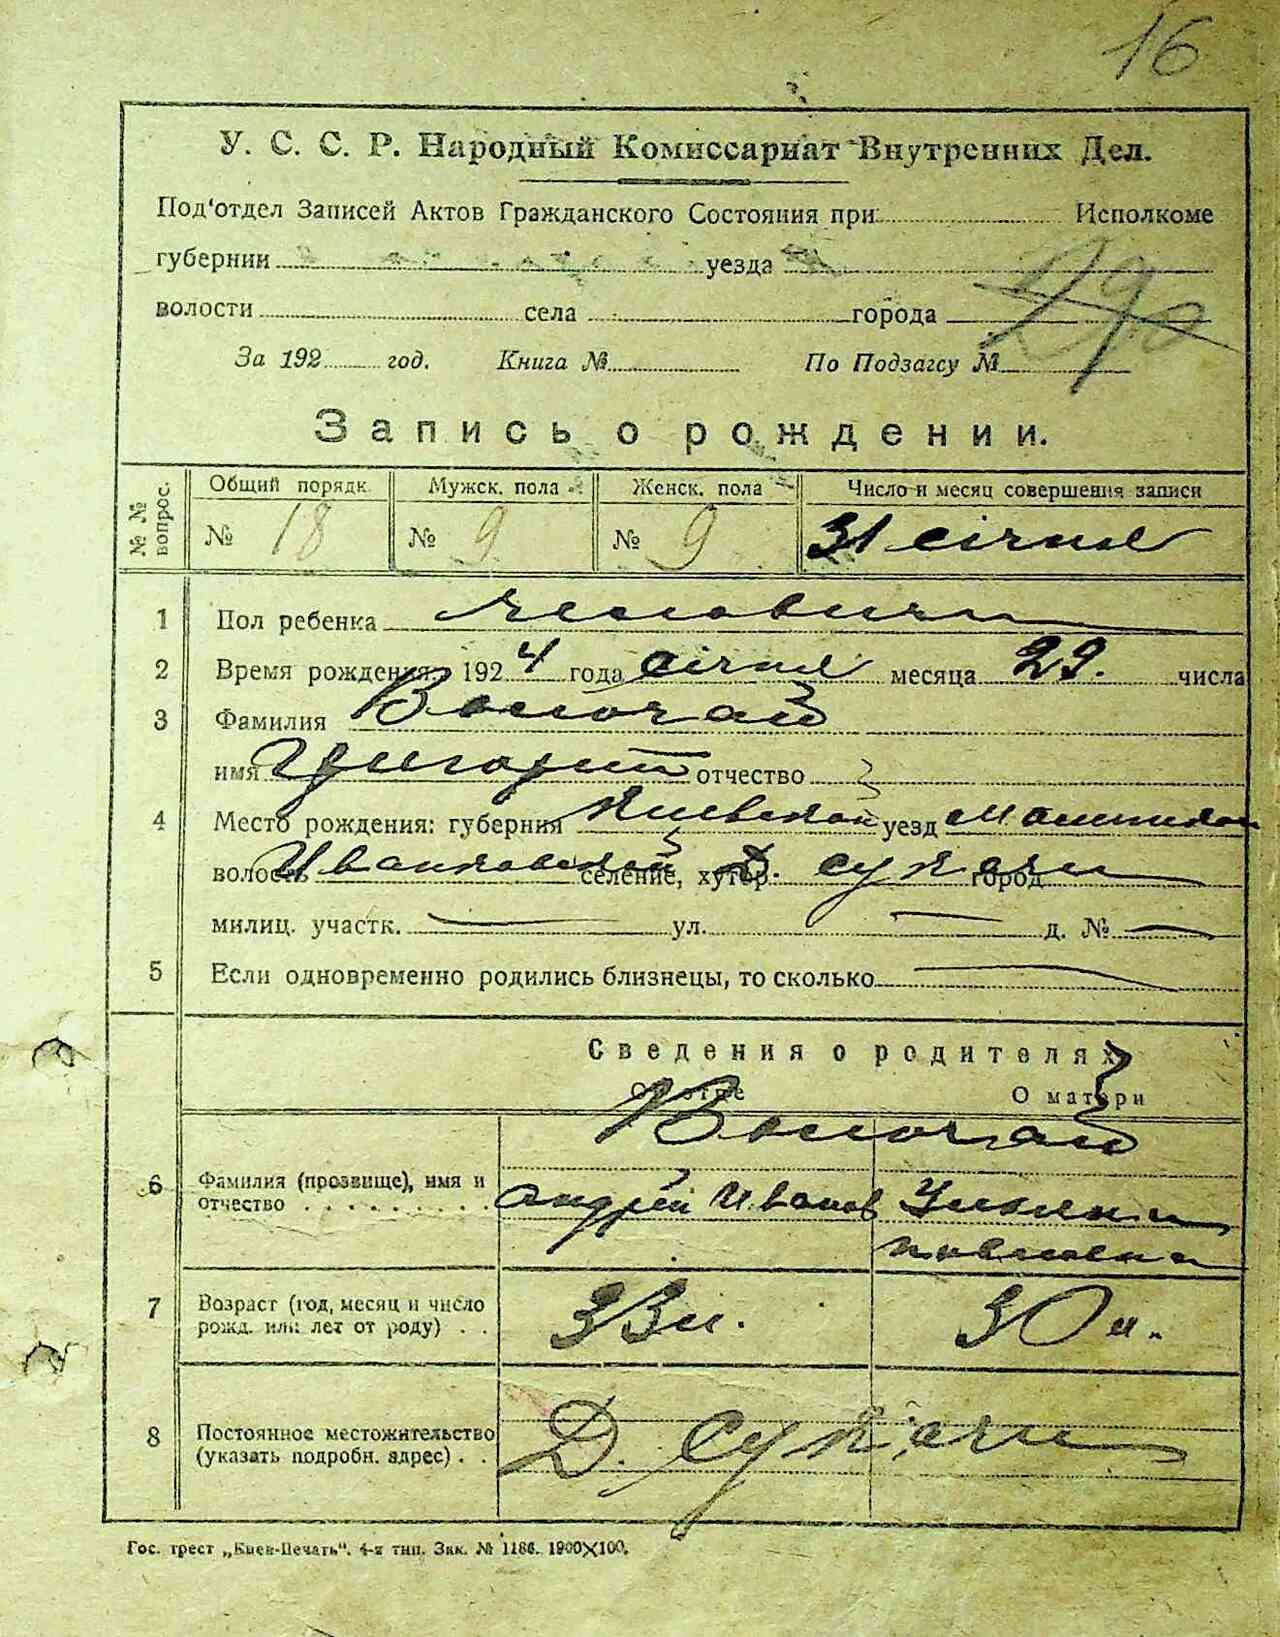 16
У. С. С. Р. Народный Комиссариат Внутренних Дел.
Под'отдел Записей Актов Гражданского Состояния при Исполкоме
губернии уезда
волости села города
290
За 192 год. Книга № По Подзагсу №
Запись о рождении.
№ № вопрос. Общий порядк. Мужск. пола Женск. пола Число и месяц совершения записи
№ 18 № 9 № 9 31 січня
1 Пол ребенка
2 Время рождения: 1924 года січня месяца 29. числа
3 Фамилия
имя Григорій отчество
4 Место рождения: губерния Киевской уезд
волость Иванковской селение, хутор Д. Сукачи город
милиц. участк. ул. д. №
5 Если одновременно родились близнецы, то сколько
Сведения о родителях
О отце О матери
6 Фамилия (прозвище), имя и
отчество Андрій Иванов
7 Возраст (год, месяц и число
рожд. или лет от роду) 33 л. 30 л.
8 Постоянное местожительство
(указать подробн. адрес) Д. Сукачи
Гос. трест „Киев-Печать". 4-я тип. Зак. № 1186. 1900×100.